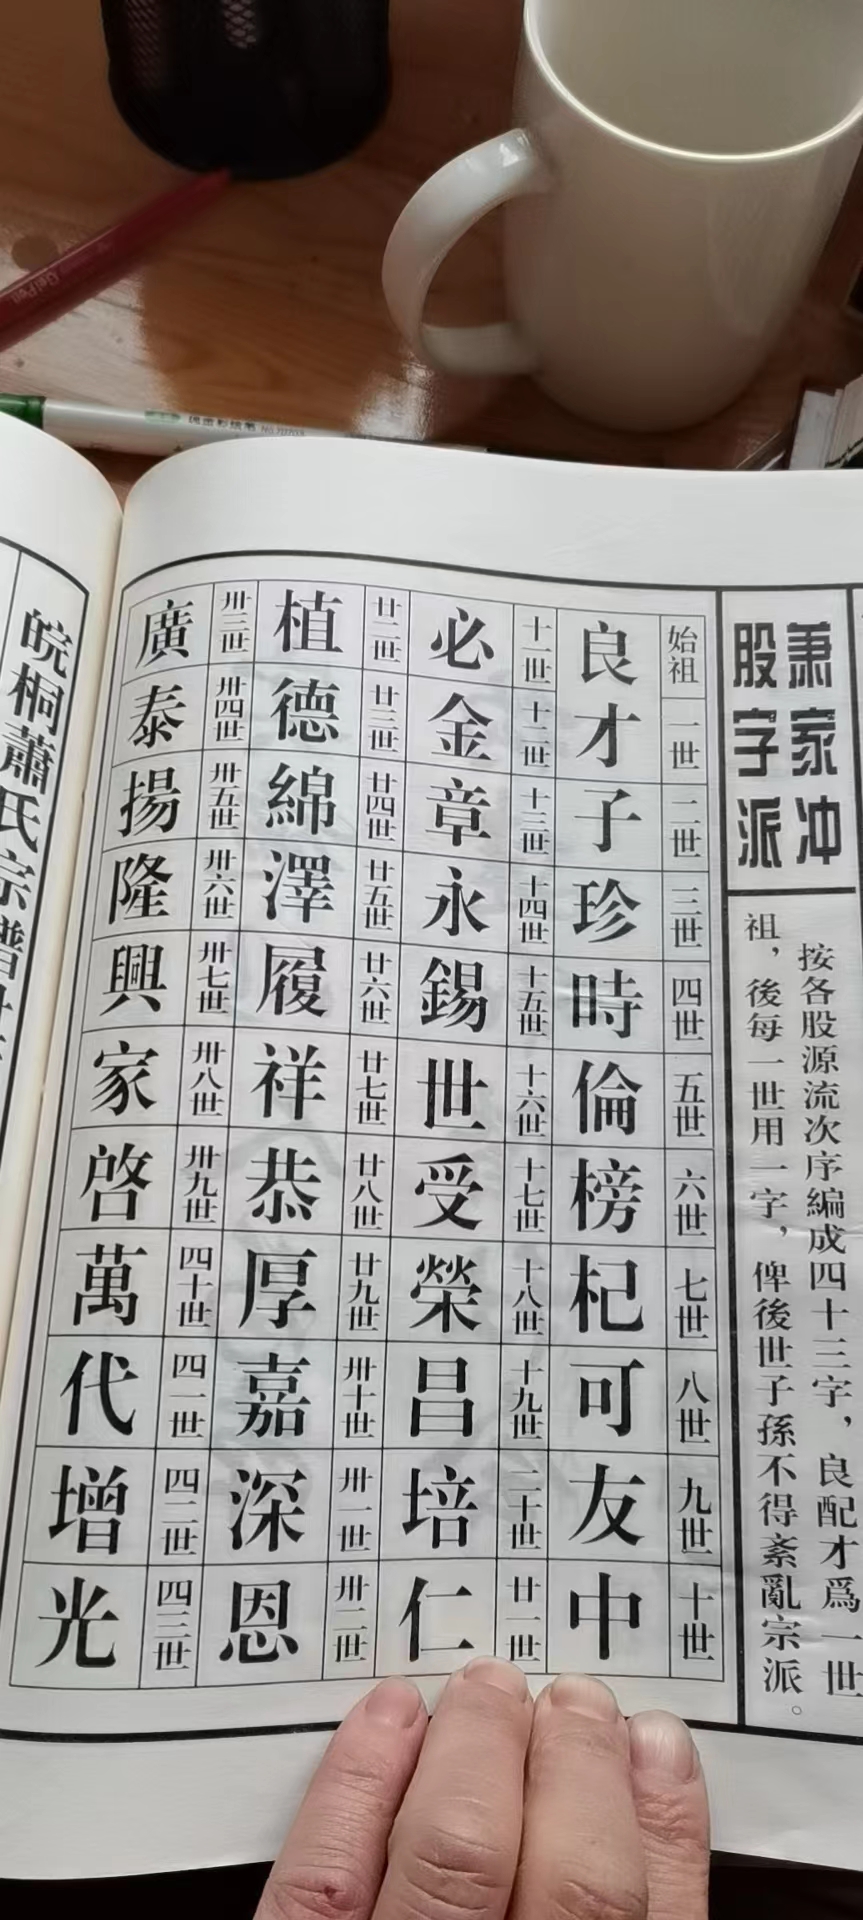 蕭家冲
股字派
按各股源流次序編成四十三字，良配才爲一世
祖，後每一世用一字，俾後世子孫不得紊亂宗派。
始祖 一世 二世 三世 四世 五世 六世 七世 八世 九世 十世
良才子珍時倫榜杞可友中
十一世 十二世 十三世 十四世 十五世 十六世 十七世 十八世 十九世 二十世 廿一世
必金章永錫世受榮昌培仁
廿二世 廿三世 廿四世 廿五世 廿六世 廿七世 廿八世 廿九世 卅十世 卅一世 卅二世
植德綿澤履祥恭厚嘉深恩
卅三世 卅四世 卅五世 卅六世 卅七世 卅八世 卅九世 四十世 四一世 四二世 四三世
廣泰揚隆興家啓萬代增光
皖桐蕭氏宗譜